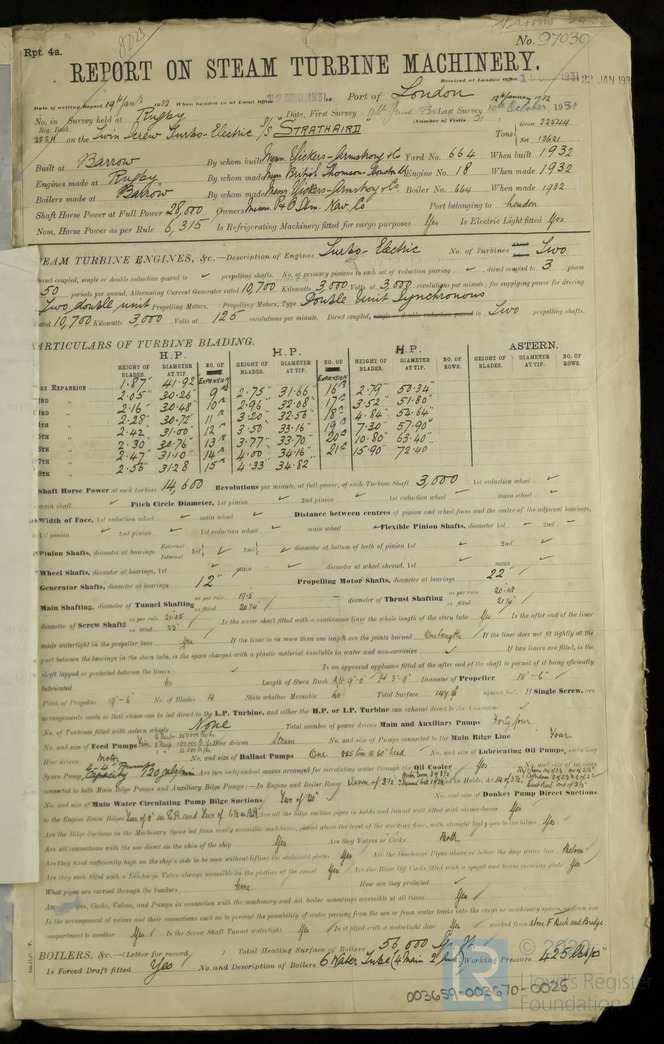 Rpt. 4a.
No. 97030
REPORT ON STEAM TURBINE MACHINERY.
Received at London Office
22 JAN 193
Date of writing Report 19th Jany 1932 When handed in at Local Office Port of London
No. in Survey held at Rugby Date, First Survey Last Survey 10th October, 1931
Reg. Book. (Number of Visits 31
on the Twin Screw Turbo-Electric S/S STRATHAIRD Tons Gross 22544
Net 13621
Built at Barrow By whom built Messrs Vickers-Armstrong & Co Yard No. 664 When built 1932
Engines made at Rugby By whom made Messrs British Thomson-Houston Engine No. 18 When made 1932
Boilers made at Barrow By whom made Messrs Vickers-Armstrong & Co. Boiler No. 664 When made 1932
Shaft Horse Power at Full Power 28,000 Owners Messrs P & O Stm. Nav. Co Port belonging to London
Nom. Horse Power as per Rule 6,315 Is Refrigerating Machinery fitted for cargo purposes Yes Is Electric Light fitted Yes
EAM TURBINE ENGINES, &c.—Description of Engines Turbo-Electric No. of Turbines Two
direct coupled, single or double reduction geared to propelling shafts. No. of primary pinions to each set of reduction gearing direct coupled to 3 phase
50 periods per second, Alternating Current Generator rated 10,700 Kilowatts 3,000 Volts at 3,000 revolutions per minute; for supplying power for driving
Two double unit Propelling Motors, Type Double unit Synchronous
rated 10,700 Kilowatts 3,000 Volts at 125 revolutions per minute. Direct coupled, single or double reduction geared to Two propelling shafts.
ARTICULARS OF TURBINE BLADING.
H.P. H.P. H.P. ASTERN.
HEIGHT OF BLADES. DIAMETER AT TIP. NO. OF EXPANSION HEIGHT OF BLADES. DIAMETER AT TIP. NO. OF EXPANSION HEIGHT OF BLADES. DIAMETER AT TIP. NO. OF ROWS. HEIGHT OF BLADES. DIAMETER AT TIP. NO. OF ROWS.
ST EXPANSION 1.87" 41.92 9th 2.75" 31.66 16th 2.79" 50.34"
2.05" 30.26" 10th 2.96" 32.08" 17th 3.52" 51.80"
2.16" 30.48" 11th 3.20" 32.56" 18th 4.84" 54.64"
2.28" 30.72" 12th 3.50" 33.16" 19th 7.30" 57.90"
2.42" 31.00" 13th 3.77" 33.70" 20th 10.80" 63.40"
2.30" 30.76" 14th 4.00" 34.16" 21st 15.90" 72.40"
2.47" 31.10" 15th 4.33" 34.82
8TH 2.56" 31.28
Shaft Horse Power at each turbine 14,600 Revolutions per minute, at full power, of each Turbine Shaft 3,000 1st reduction wheel
main shaft Pitch Circle Diameter, 1st pinion 2nd pinion 1st reduction wheel main wheel
Width of Face, 1st reduction wheel main wheel Distance between centres of pinion and wheel faces and the centre of the adjacent bearings,
1st pinion 2nd pinion 1st reduction wheel main wheel Flexible Pinion Shafts, diameter 1st 2nd
Pinion Shafts, diameter at bearings External 1st 2nd diameter at bottom of teeth of pinion 1st 2nd
Internal
Wheel Shafts, diameter at bearings, 1st main diameter at wheel shroud, 1st main
Generator Shafts, diameter at bearings 12" Propelling Motor Shafts, diameter at bearings 22"
Main Shafting, diameter of Tunnel Shafting as per rule 19.5 as fitted 20¾" diameter of Thrust Shafting as per rule as fitted
diameter of Screw Shaft as per rule 21.05 as fitted 22" Is the screw shaft fitted with a continuous liner the whole length of the stern tube Yes Is the after end of the liner
made watertight in the propeller boss Yes If the liner is in more than one length are the joints burned One length If the liner does not fit tightly at the
part between the bearings in the stern tube, is the space charged with a plastic material insoluble in water and non-corrosive If two liners are fitted, is the
shaft lapped or protected between the liners Is an approved appliance fitted at the after end of the shaft to permit of it being efficiently
lubricated No Length of Stern Bush Diameter of Propeller 18'-6"
Pitch of Propeller 19'-6" No. of Blades 4 State whether Moveable Total Surface square feet. If Single Screw, are
arrangements made so that steam can be led direct to the L.P. Turbine, and either the H.P. or L.P. Turbine can exhaust direct to the Condenser
No. of Turbines fitted with astern wheels None Total number of power driven Main and Auxiliary Pumps Forty four
No. and size of Feed Pumps How driven Steam No. and size of Pumps connected to the Main Bilge Line Four
How driven Motor No. and size of Ballast Pumps One No. and size of Lubricating Oil Pumps, including
Spare Pump Capacity Are two independent means arranged for circulating water through the Oil Cooler Yes
connected to both Main Bilge Pumps and Auxiliary Bilge Pumps;—In Engine and Boiler Room In Holds, &c.
No. and size of Main Water Circulating Pump Bilge Suctions No. and size of Donkey Pump Direct Suctions
to the Engine Room Bilges Are all the bilge suction pipes in holds and tunnel well fitted with strum-boxes Yes
Are the Bilge Suctions in the Machinery Space led from easily accessible mud-boxes, placed above the level of the working floor, with straight tail pipes to the bilges Yes
Are all connections with the sea direct on the skin of the ship Yes Are they Valves or Cocks Both
Are they fixed sufficiently high on the ship's side to be seen without lifting the stokehold plates Yes Are the Discharge Pipes above or below the deep water line Below
Are they each fitted with a Discharge Valve always accessible on the plating of the vessel Yes Are the Blow Off Cocks fitted with a spigot and brass covering plate Yes
What pipes are carried through the bunkers None How are they protected
Are all Pipes, Cocks, Valves, and Pumps in connection with the machinery and all boiler mountings accessible at all times Yes
Is the arrangement of valves and their connections such as to prevent the possibility of water passing from the sea or from water tanks into the cargo or machinery spaces, or from one
compartment to another Yes Is the Screw Shaft Tunnel watertight Yes Is it fitted with a watertight door Yes worked from Above F Deck and Bridge
BOILERS, &c.—(Letter for record Total Heating Surface of Boilers 56,000 Sq. Ft.
Is Forced Draft fitted Yes No. and Description of Boilers 6 Water Tube (4 Main 2 Aux) Working Pressure 425 lbs/□"
© 20
LR
Lloyd's Register
Foundation
003659-003670-0025